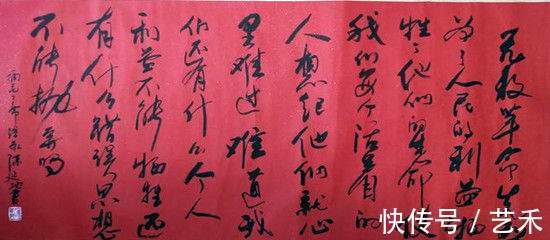 无数革命先
为了人民的利益牺
牲了他们的生命使
我们每个活着的
人想起他们就心
里难过难道我
们还有什么个人
利益不能牺牲还
有什么错误思想
不能抛弃吗
快传号/艺禾